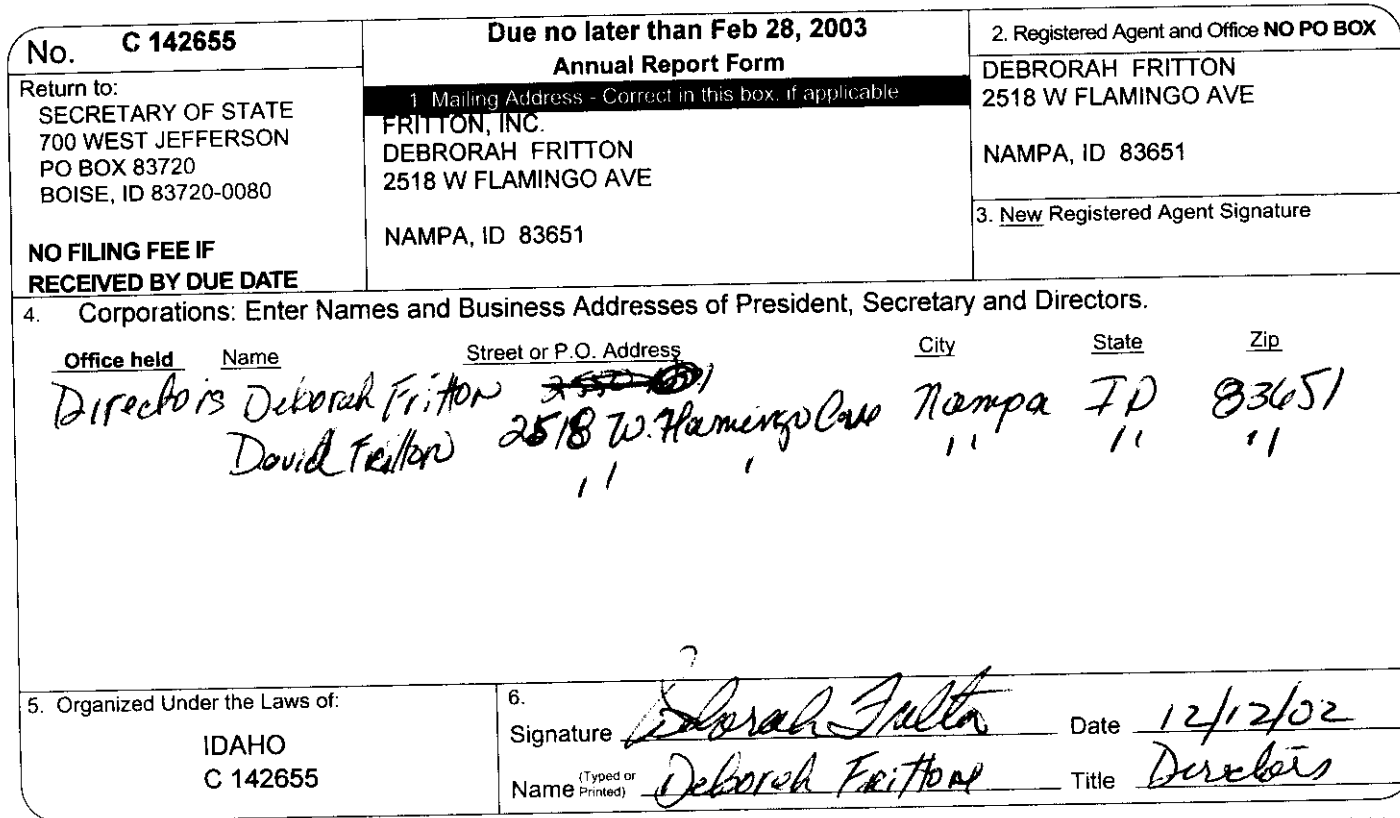 No. C 142655
Return to:
SECRETARY OF STATE
700 WEST JEFFERSON
PO BOX 83720
BOISE, ID 83720-0080
NO FILING FEE IF
RECEIVED BY DUE DATE
Due no later than Feb 28, 2003
Annual Report Form
1 Mailing Address - Correct in this box, if applicable
FRITTON, INC.
DEBRORAH FRITTON
2518 W FLAMINGO AVE
NAMPA, ID 83651
2. Registered Agent and Office NO PO BOX
DEBRORAH FRITTON
2518 W FLAMINGO AVE
NAMPA, ID 83651
3. New Registered Agent Signature
4. Corporations: Enter Names and Business Addresses of President, Secretary and Directors.
Office held Name Street or P.O. Address City State Zip
Directors Deborah Fritton 2518 W. Flamingo Nampa ID 83651
David Fritton " " " " "
5. Organized Under the Laws of:
IDAHO
C 142655
6.
Signature Deborah Fritton Date 12/12/02
Name (Typed or Printed) Deborah Fritton Title Directors